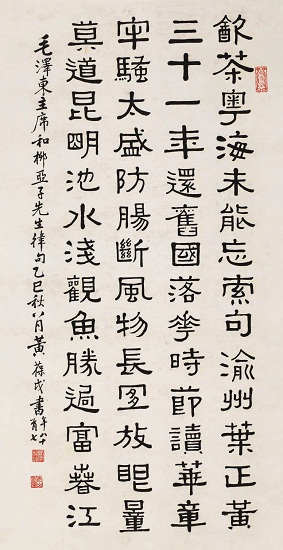 飲茶粵海未能忘索句渝州葉正黃
三十一年還舊國落花時節讀華章
牢騷太盛防腸斷風物長宜放眼量
莫道昆明池水淺觀魚勝過富春江
毛澤東主席和柳亞子先生律句乙巳秋八月黃葆戉書年八十有七